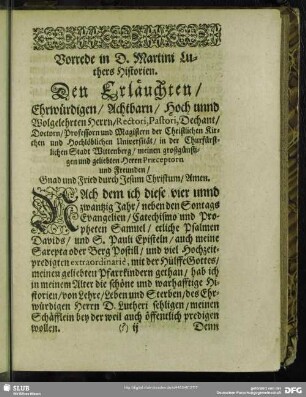 Vorrede in D. Martini Lu-
thers Historien.
Den Erläuchten/
Ehrwürdigen/ Achtbarn/ Hoch vnnd
Wolgelehrten Herrn/ Rectori, Pastori, Dechant/
Doctorn/ Professorn vnd Magistern der Christlichen Kir-
chen vnd Hochlöblichen Vniversität/ in der Churfürst-
lichen Stadt Wittenberg/ meinen großgünsti-
gen vnd geliebten Herrn Præceptorn
vnd Freunden/
Gnad vnd Fried durch Jesum Christum/ Amen.
NAch dem ich diese vier vnnd
zwantzig Jahr/ neben den Sontags
Evangelien/ Catechismo vnd Pro-
pheten Samuel/ etliche Psalmen
Davids/ vnd S. Pauli Episteln/ auch meine
Sarepta oder Berg Postill/ vnd viel Hochzeit-
predigten extraordinariè, mit der Hülffe Gottes/
meinen geliebten Pfarrkindern gethan/ hab ich
in meinem Alter die schöne vnd warhafftige Hi-
storien/ von Lehre/ Leben vnd Sterben/ des Ehr-
würdigen Herrn D. Lutheri sehligen/ meinen
Schäfflein bey der weil auch öffentlich predigen
wollen.
ij
Denn
SLUB